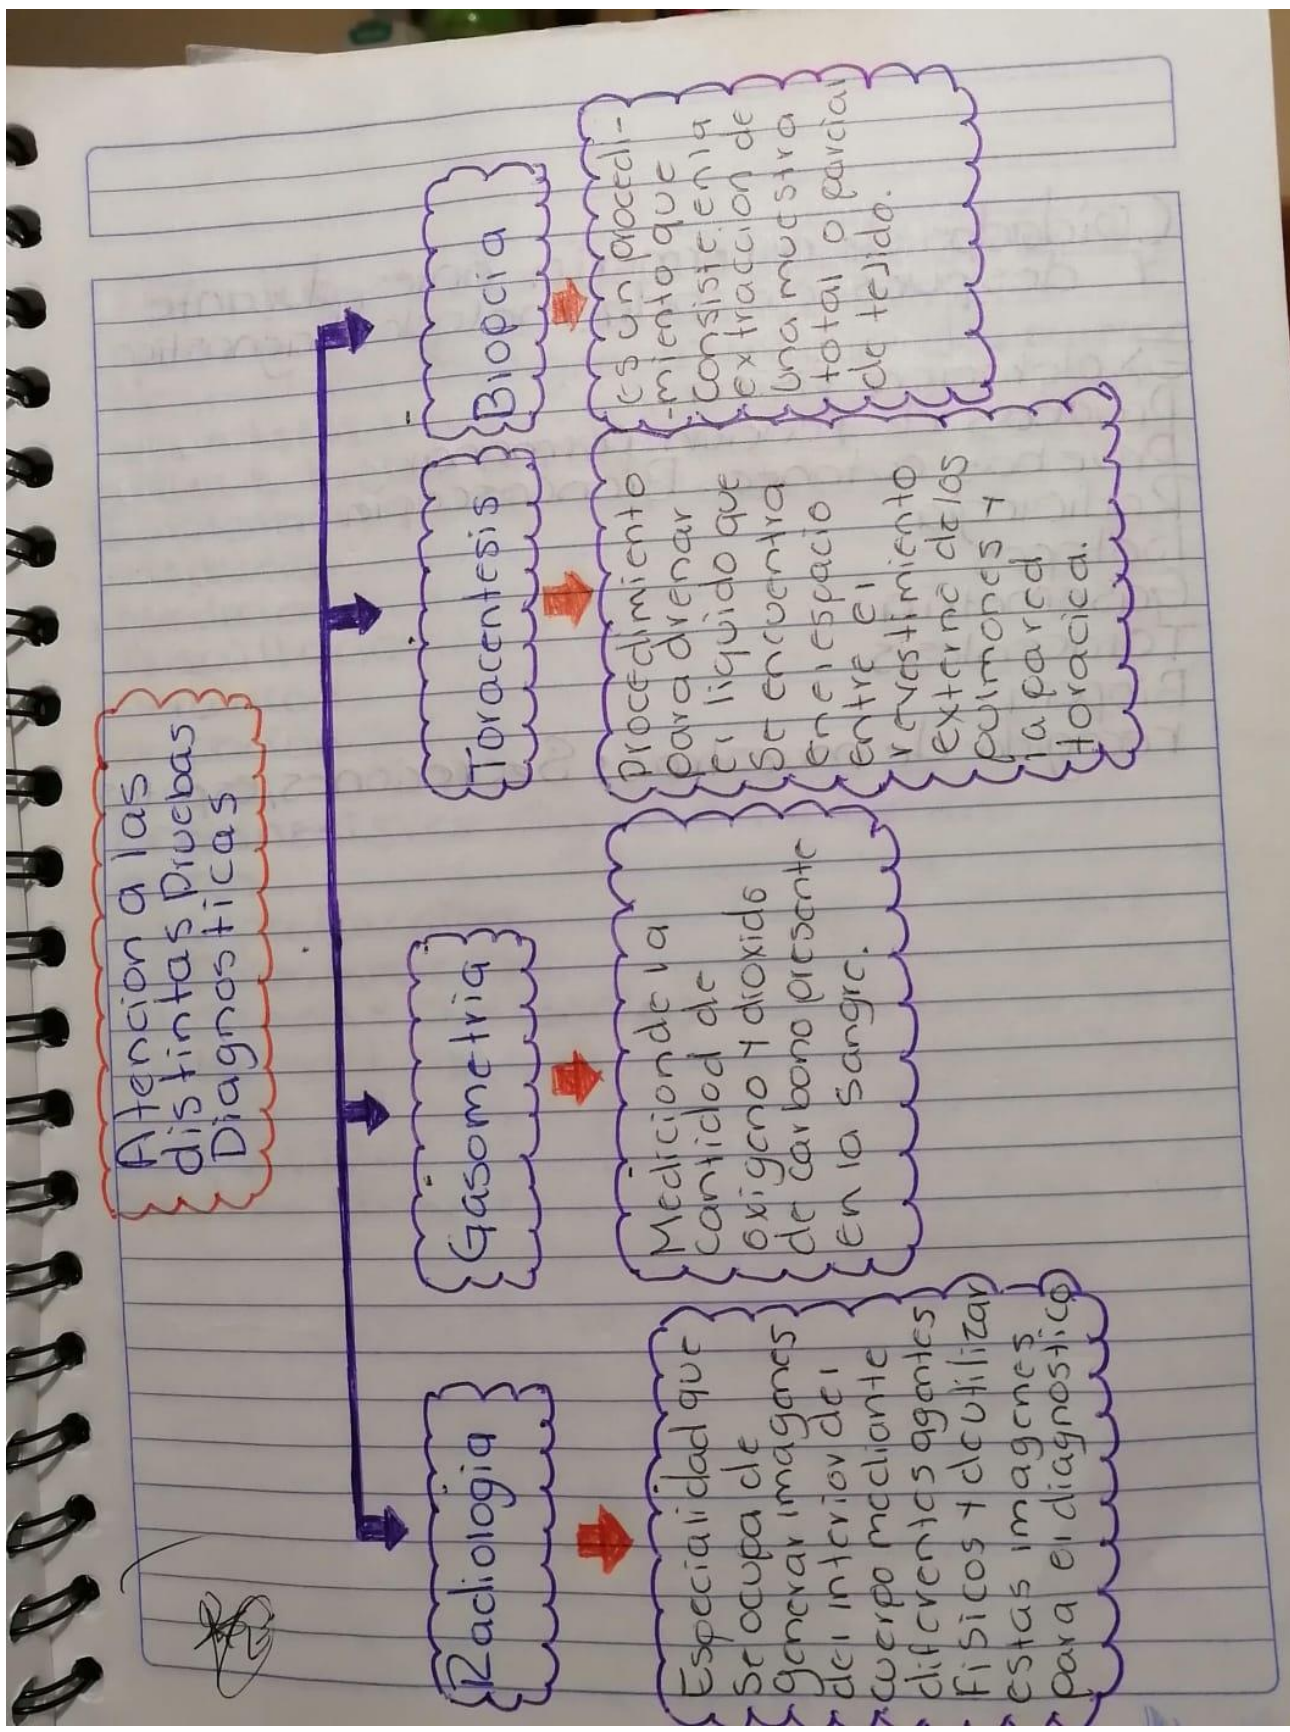 Atencion a las
distintas Pruebas
Diagnosticas
Radiologia
Especialidad que
se ocupa de
generar imagenes
del interior del
cuerpo mediante
diferentes agentes
fisicos y de utilizar
estas imagenes
para el diagnostico
Gasometria
Medicion de la
cantidad de
oxigeno y dioxido
de carbono presente
en la sangre.
Toracentesis
Procedimiento
para drenar
el liquido que
se encuentra
en el espacio
entre el
revestimiento
externo de los
pulmones y
la pared
toracica.
Biopcia
es un procedi-
-miento que
consiste en la
extraccion de
una muestra
total o parcial
de tejido.